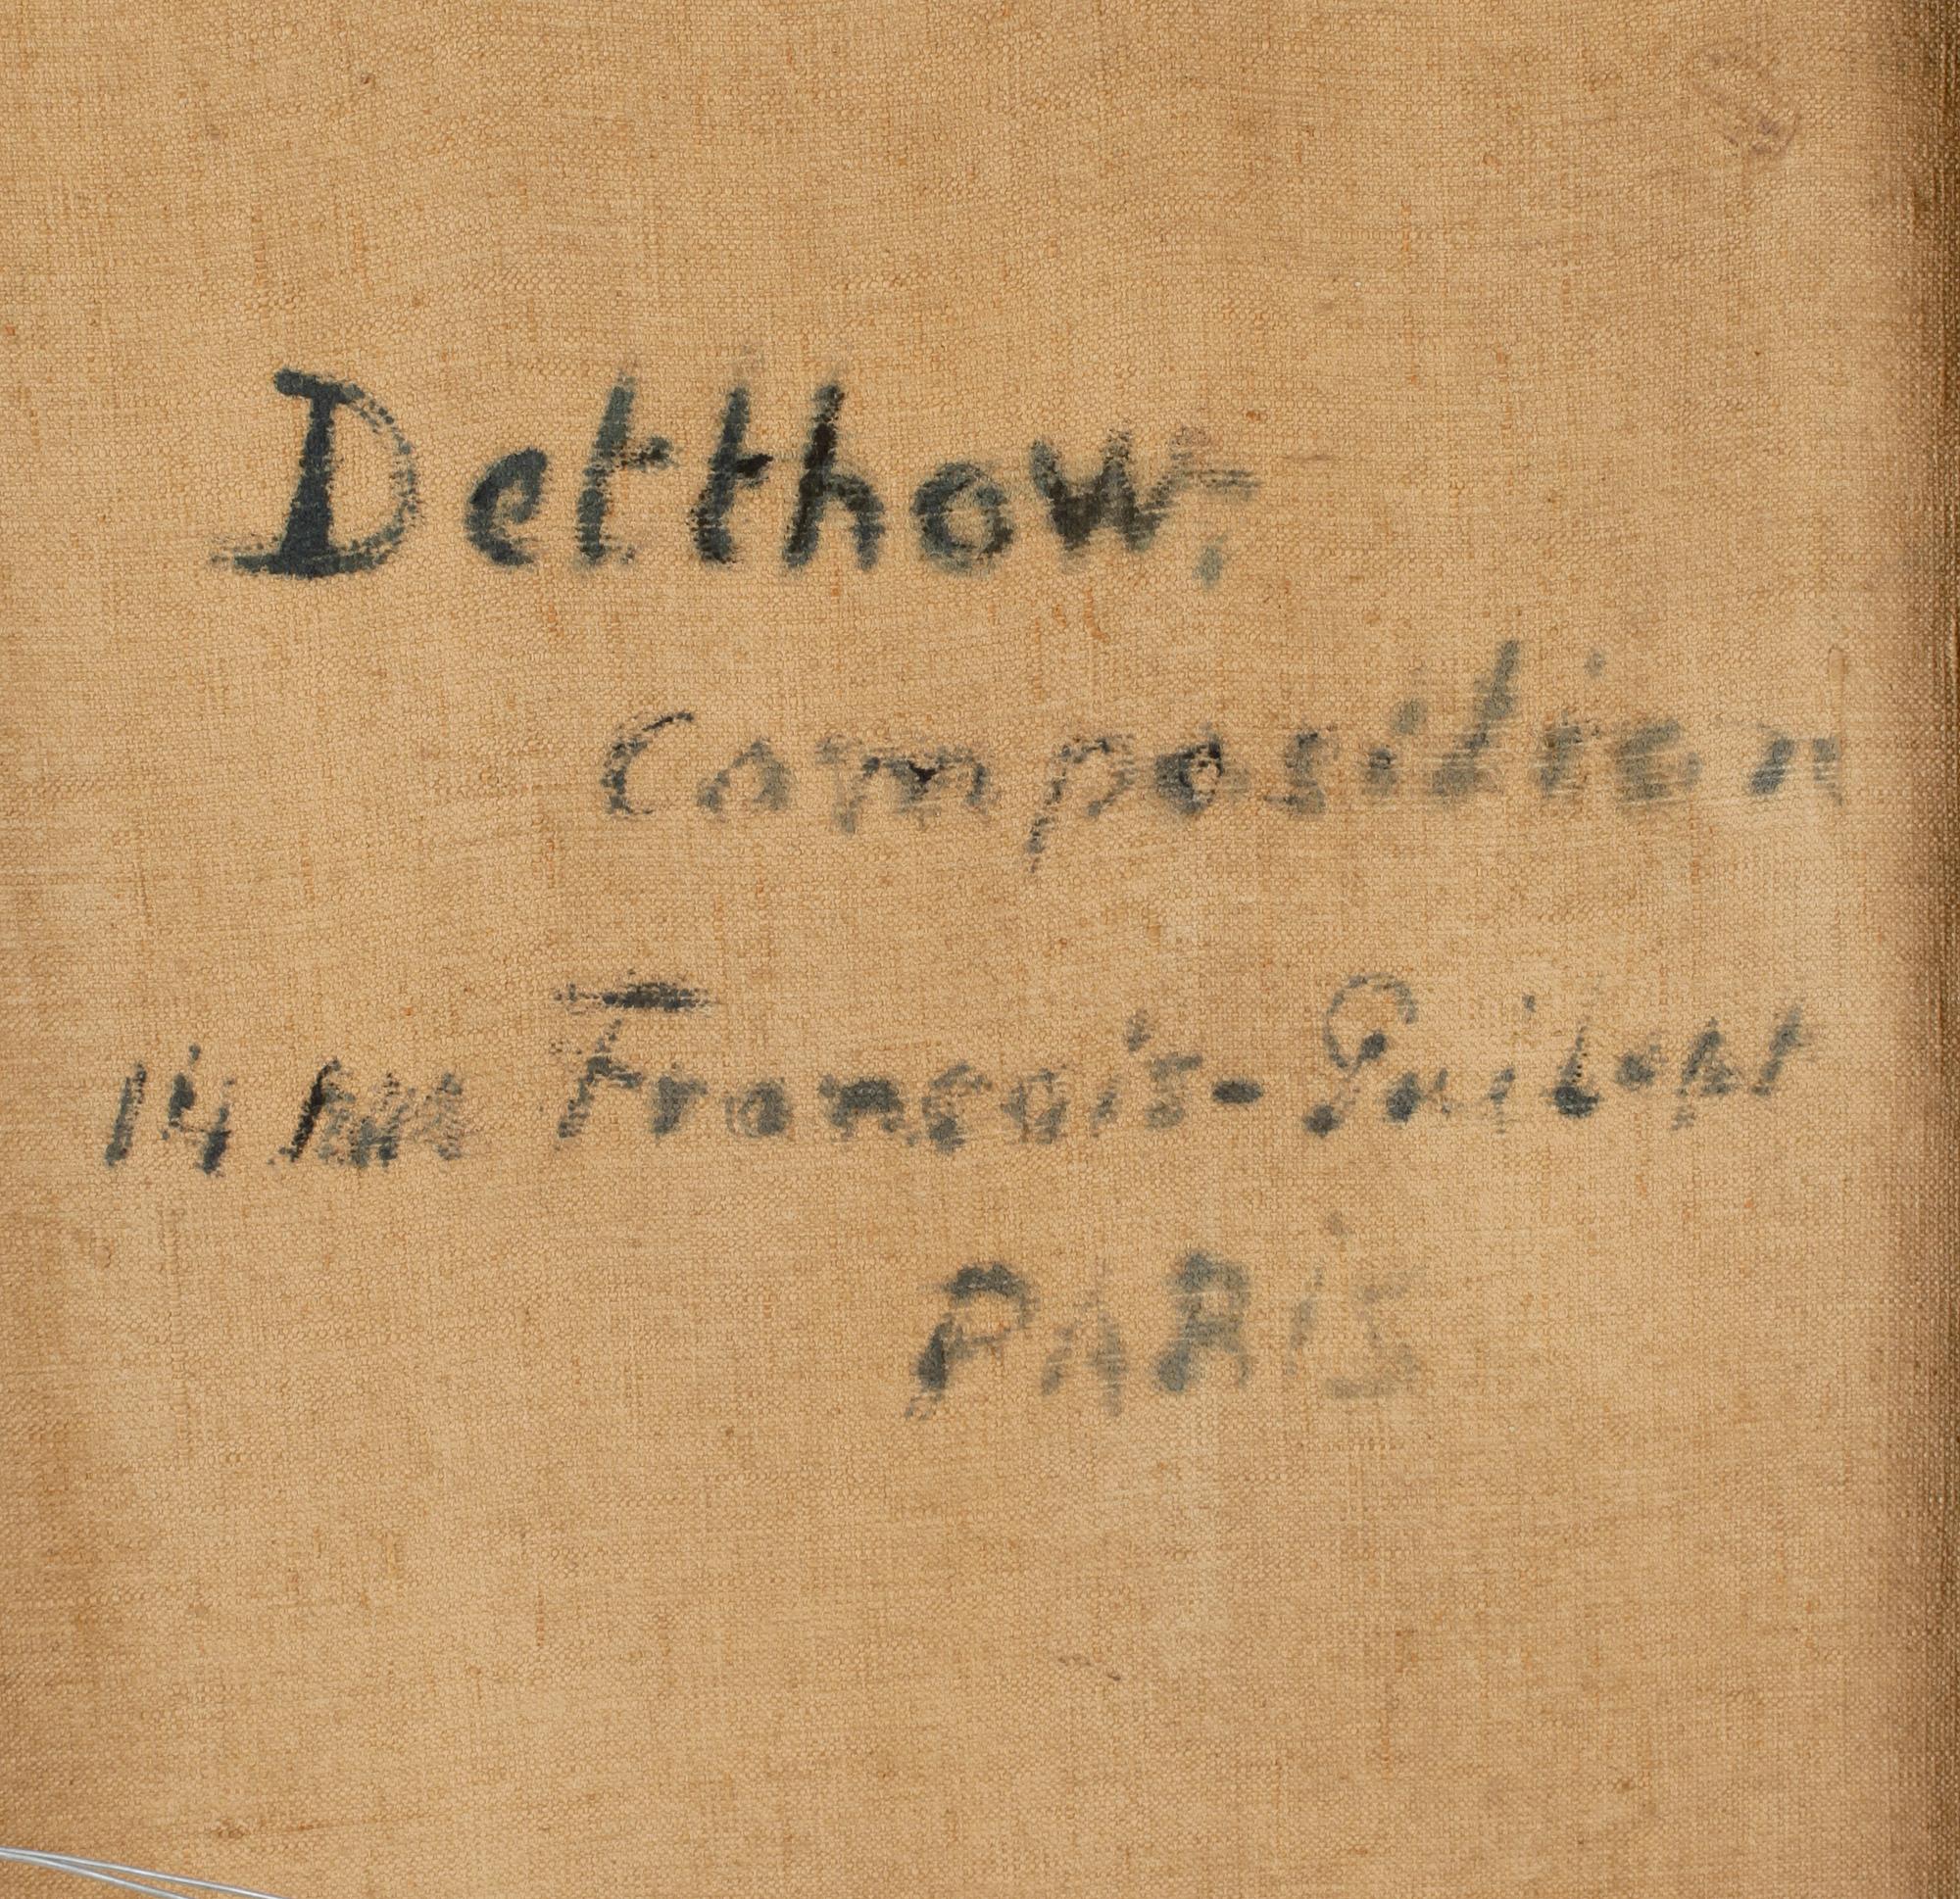 Detthow.
Composition
14 rue François-Guibert
PARIS